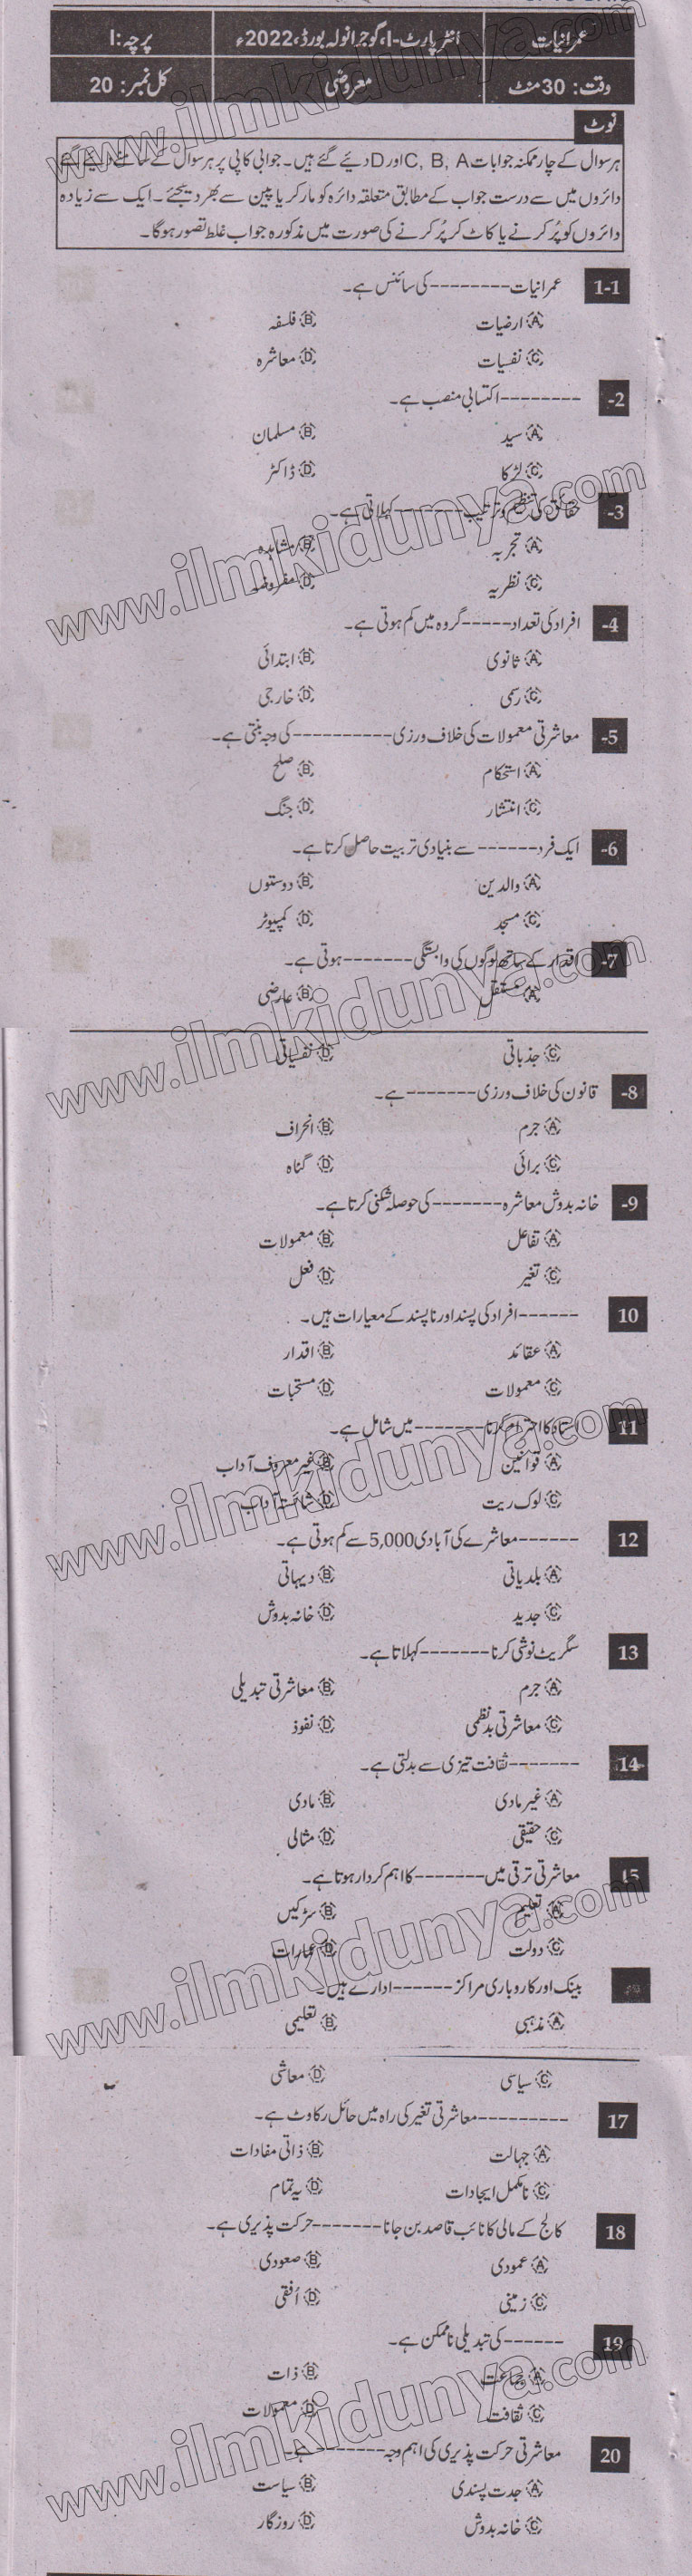 عمرانیات انٹر پارٹ-I، گوجرانوالہ بورڈ، 2022ء پرچہ: I
وقت: 30 منٹ معروضی کل نمبر: 20
نوٹ
ہر سوال کے چار ممکنہ جوابات C, B, A اور D دیئے گئے ہیں۔ جوابی کاپی پر ہر سوال کے سامنے دیئے گئے
دائروں میں سے درست جواب کے مطابق متعلقہ دائرہ کو مارکر یا پین سے بھر دیجئے۔ ایک سے زیادہ
دائروں کو پُر کرنے یا کاٹ کر پُر کرنے کی صورت میں مذکورہ جواب غلط تصور ہوگا۔
1-1 عمرانیات -------- کی سائنس ہے۔
(A) ارضیات (B) فلسفہ
(C) نفسیات (D) معاشرہ
-2 -------- اکتسابی منصب ہے۔
(A) سید (B) مسلمان
(C) لڑکا (D) ڈاکٹر
-3 حقائق کی تنظیم و ترتیب ------- کہلاتی ہے۔
(A) تجربہ (B) مشاہدہ
(C) نظریہ (D) مفروضہ
-4 افراد کی تعداد ----- گروہ میں کم ہوتی ہے۔
(A) ثانوی (B) ابتدائی
(C) رسمی (D) خارجی
-5 معاشرتی معمولات کی خلاف ورزی ---------- کی وجہ بنتی ہے۔
(A) استحکام (B) صلح
(C) انتشار (D) جنگ
-6 ایک فرد ------ سے بنیادی تربیت حاصل کرتا ہے۔
(A) والدین (B) دوستوں
(C) مسجد (D) کمپیوٹر
-7 اقدار کے ساتھ لوگوں کی وابستگی ------- ہوتی ہے۔
(A) مستقل (B) عارضی
(C) جذباتی (D) نفسیاتی
-8 قانون کی خلاف ورزی ------- ہے۔
(A) جرم (B) انحراف
(C) برائی (D) گناہ
-9 خانہ بدوش معاشرہ ------- کی حوصلہ شکنی کرتا ہے۔
(A) تفاعل (B) معمولات
(C) تغیر (D) فعل
10 ------ افراد کی پسند اور ناپسند کے معیارات ہیں۔
(A) عقائد (B) اقدار
(C) معمولات (D) مستحبات
11 استاد کا احترام کرنا ------- میں شامل ہے۔
(A) قوانین (B) غیر معروف آداب
(C) لوک ریت (D) شائستہ آداب
12 ------ معاشرے کی آبادی 5,000 سے کم ہوتی ہے۔
(A) بلدیاتی (B) دیہاتی
(C) جدید (D) خانہ بدوش
13 سگریٹ نوشی کرنا ------- کہلاتا ہے۔
(A) جرم (B) معاشرتی تبدیلی
(C) معاشرتی بدنظمی (D) نفوذ
14 ------- ثقافت تیزی سے بدلتی ہے۔
(A) غیر مادی (B) مادی
(C) حقیقی (D) مثالی
15 معاشرتی ترقی میں ------- کا اہم کردار ہوتا ہے۔
(A) تعلیم (B) سڑکیں
(C) دولت (D) عمارات
بینک اور کاروباری مراکز ------ ادارے ہیں۔
(A) مذہبی (B) تعلیمی
(C) سیاسی (D) معاشی
17 --------- معاشرتی تغیر کی راہ میں حائل رکاوٹ ہے۔
(A) جہالت (B) ذاتی مفادات
(C) نامکمل ایجادات (D) یہ تمام
18 کالج کے مالی کا نائب قاصد بن جانا ------- حرکت پذیری ہے۔
(A) عمودی (B) صعودی
(C) زمینی (D) اُفقی
19 ------ کی تبدیلی ناممکن ہے۔
(A) جماعت (B) ذات
(C) ثقافت (D) معمولات
20 معاشرتی حرکت پذیری کی اہم وجہ -------- ہے۔
(A) جدت پسندی (B) سیاست
(C) خانہ بدوش (D) روزگار
www.ilmkidunya.com
www.ilmkidunya.com
www.ilmkidunya.com
www.ilmkidunya.com
www.ilmkidunya.com
www.ilmkidunya.com